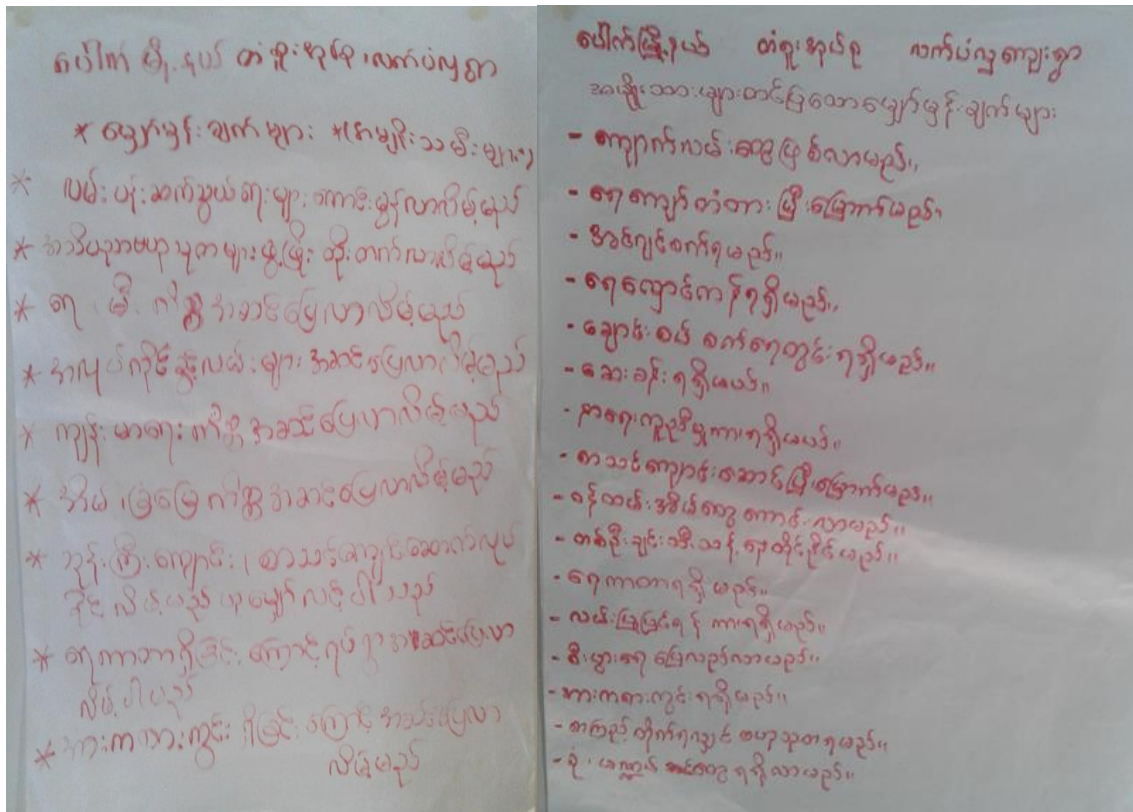 ပေါက်မြို့နယ် တံခူးအုပ်စု၊လက်ပံလှရွာ
* မျှော်မှန်းချက်များ *(အမျိုးသမီးများ)
* လမ်းပန်းဆက်သွယ်ရေးများကောင်းမွန်လာလိမ့်မည်
* အသိပညာဗဟုသုတများဖွံ့ဖြိုးတိုးတက်လာလိမ့်မည်
* ရေ၊ မီး ကိစ္စ အဆင်ပြေလာလိမ့်မည်
* အလုပ်ကိုင်အခွင့်လမ်းများ အဆင်ပြေလာလိမ့်မည်
* ကျန်းမာရေးကိစ္စအဆင်ပြေလာလိမ့်မည်
* အိမ်၊ခြံမြေကိစ္စအဆင်ပြေလာလိမ့်မည်
* ဘုန်းကြီးကျောင်း၊ စာသင်ကျောင်းဆောက်လုပ်
နိုင်လိမ့်မည်ဟုမျှော်လင့်ပါသည်
* ရေကာတာရှိခြင်းကြောင့်ရပ်ရွာအဆင်ပြေလာ
လိမ့်ပါမည်
* အားကစားကွင်းရှိခြင်းကြောင့်အဆင်ပြေလာ
လိမ့်မည်
ပေါက်မြို့နယ် တံခူးအုပ်စု လက်ပံလှကျေးရွာ
အမျိုးသားများတင်ပြသောမျှော်မှန်းချက်များ
- ကျောက်လမ်းတွေဖြစ်လာမည်။
- ရေကျော်တံတားပြီးမြောက်မည်။
- အင်ဂျင်စက်ရမည်။
- ရေလှောင်ကန်ရရှိမည်။
- ချောင်းစပ်စက်ရေတွင်းရရှိမည်။
- ဆေးခန်းရရှိမယ်။
- နာရေးကူညီမှုကားရရှိမယ်။
- စာသင်ကျောင်းဆောင်ပြီးမြောက်မည်။
- ဝန်ထမ်းအိမ်တွေကောင်းလာမည်။
- တစ်ဦးချင်းသီးသန့်နေထိုင်နိုင်မည်။
- ရေကာတာရရှိမည်။
- လမ်းပြုပြင်ရန်ကားရရှိမည်။
- စီးပွားရေးပြေလည်လာမည်။
- အားကစားကွင်းရရှိမည်။
- စာကြည့်တိုက်ရလျှင် ဗဟုသုတရမည်။
ရရှိလာမည်။